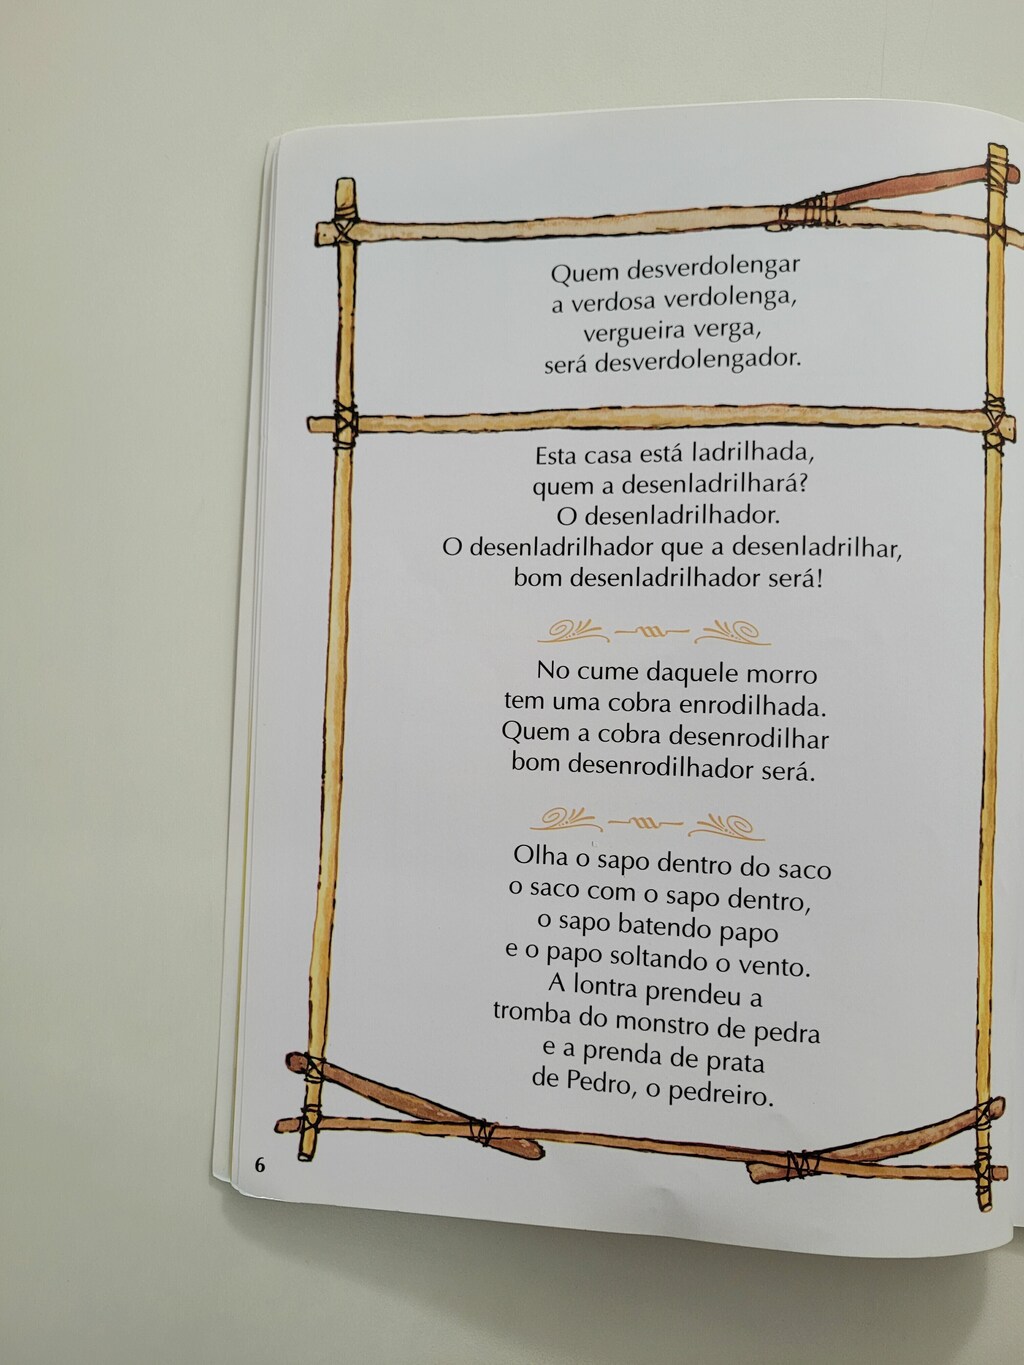 Quem desverdolengar
a verdosa verdolenga,
vergueira verga,
será desverdolengador.
Esta casa está ladrilhada,
quem a desenladrilhará?
O desenladrilhador.
O desenladrilhador que a desenladrilhar,
bom desenladrilhador será!
No cume daquele morro
tem uma cobra enrodilhada.
Quem a cobra desenrodilhar
bom desenrodilhador será.
Olha o sapo dentro do saco
o saco com o sapo dentro,
o sapo batendo papo
e o papo soltando o vento.
A lontra prendeu a
tromba do monstro de pedra
e a prenda de prata
de Pedro, o pedreiro.
6